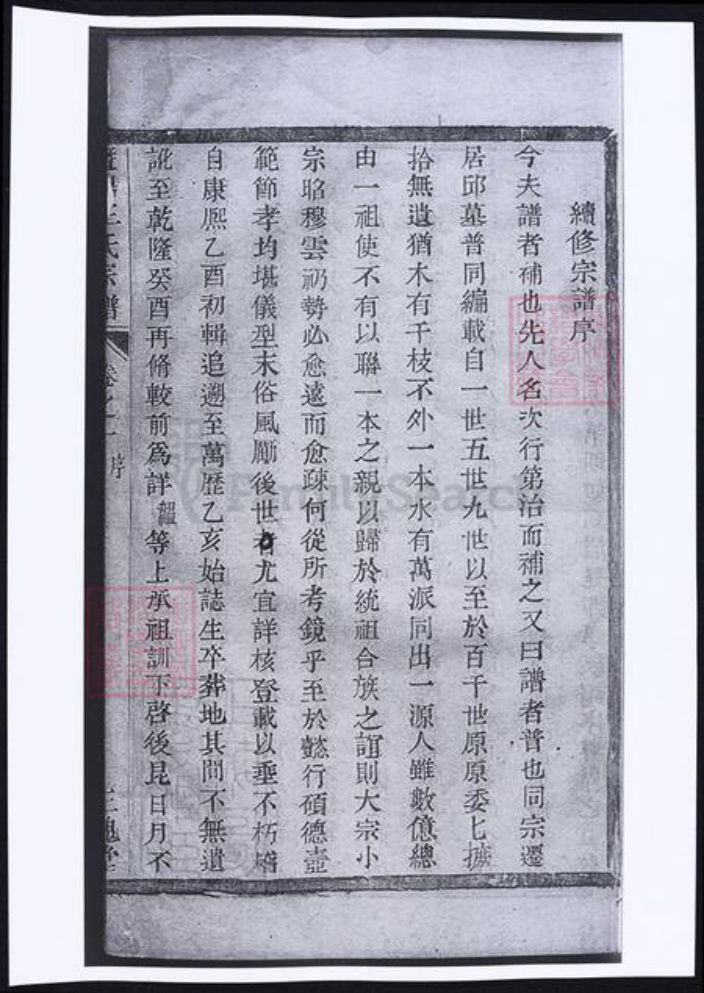 續修宗譜序
今夫譜者補也先人名次行第治而補之又曰譜者普也同宗遷
居邱墓普同編載自一世五世九世以至於百千世原原委匕摭
拾無遺猶木有千枝不外一本水有萬派同出一源人雖數億總
由一祖使不有以聯一本之親以歸於統祖合族之誼則大宗小
宗昭穆雲礽勢必愈遠而愈疎何從所考鏡乎至於懿行碩德壼
範節孝均堪儀型末俗風勵後世者尤宜詳核登載以垂不朽
自康熈乙酉初輯追遡至萬歷乙亥始誌生卒葬地其間不無遺
訛至乾隆癸酉再脩較前爲詳 等上承祖訓下啓後昆日月不
王氏宗譜 卷之一 序 三槐堂
FamilySearch